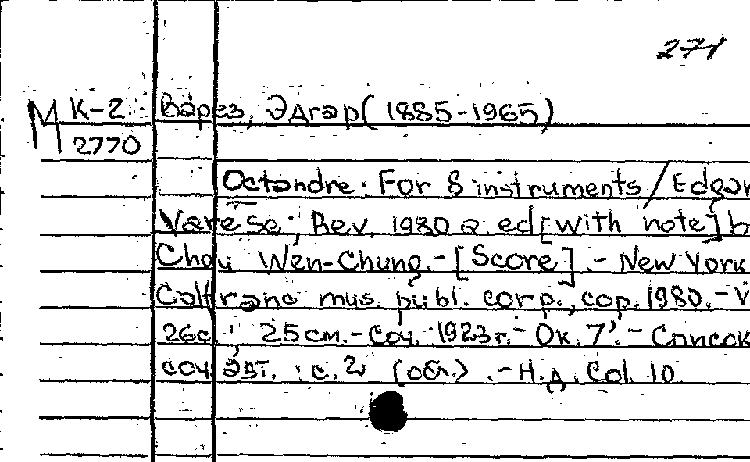 271
М К-2 Варез, Эдгар (1885-1965)
2770
Octandre. For 8 instruments / Edgar
Varese; Rev. 1980 a ed [with note] b
Chou Wen-Chung. - [Score]. - New York
Colfranc mus. publ. corp., cop. 1980. - V
26с.; 25см. - Соч. 1923г. - Ок. 7'. - Список
соч. авт.: с. 2 (обл.). - Н.д. Col. 10